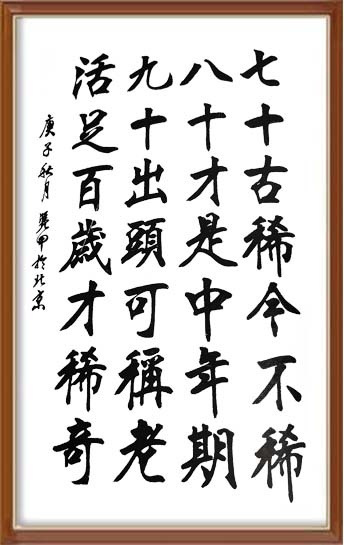 七十古稀今不稀
八十才是中年期
九十出頭可稱老
活足百歲才稀奇
庚子秋月 甲於北京